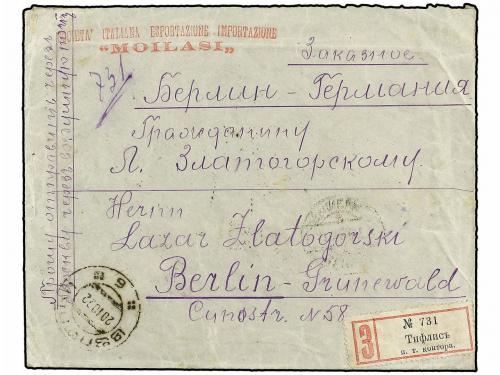 SOCIETA' ITALIANA ESPORTAZIONE IMPORTAZIONE
"MOILASI"
Заказное
731
Берлин - Германия
Гражданину
Л. Златогорскому.
Herrn
Lazar Zlatogorski
Berlin - Grunewald
Cunostr. N 58
Прошу
через
З
№ 731
Тифлисъ
п. т. контора.